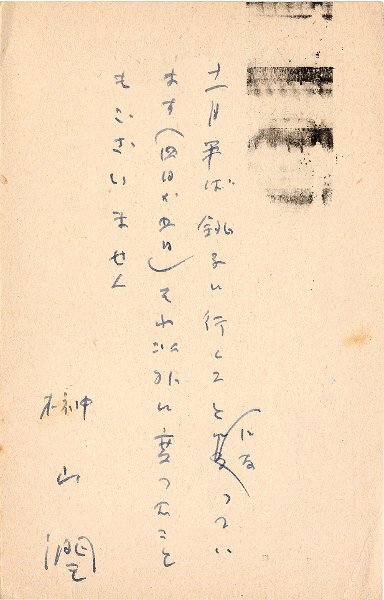 十一月半ば銚子に行くことになつてい
ます(四日か五日)それ以外に変つたこと
もございません
榊山潤